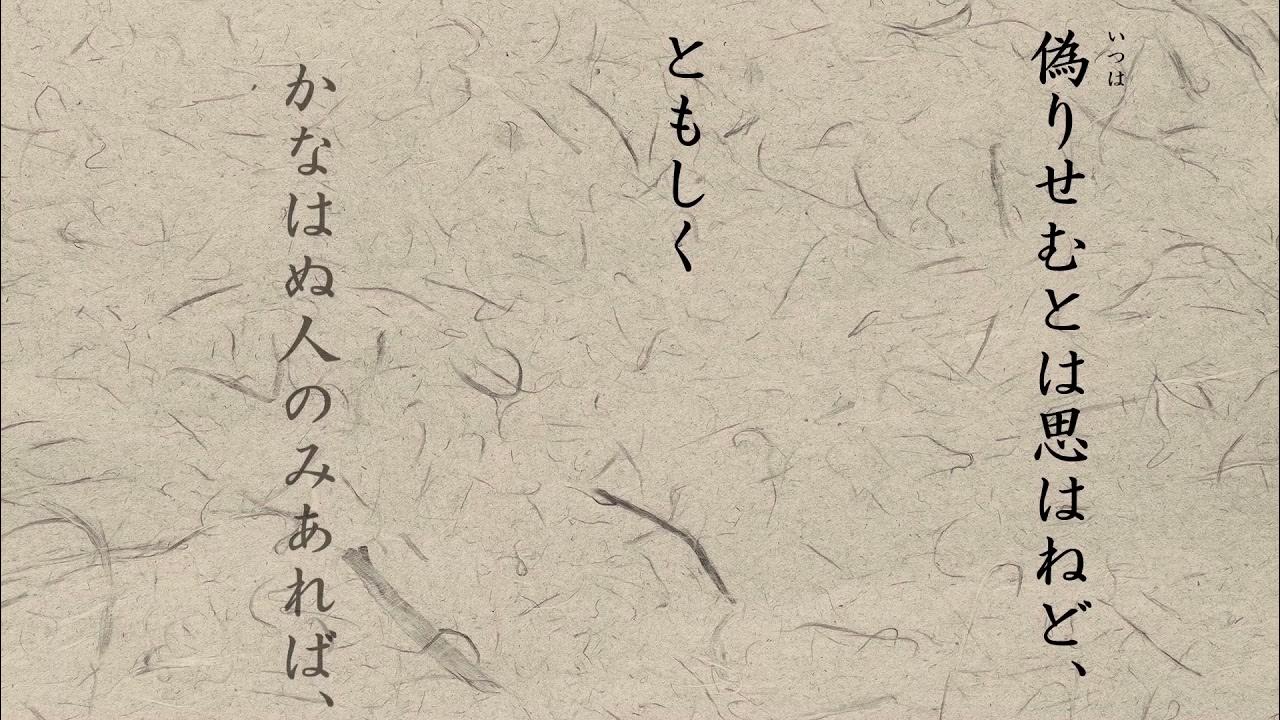 偽りせむとは思はねど、
いつは
ともしく
かなはぬ人のみあれば、